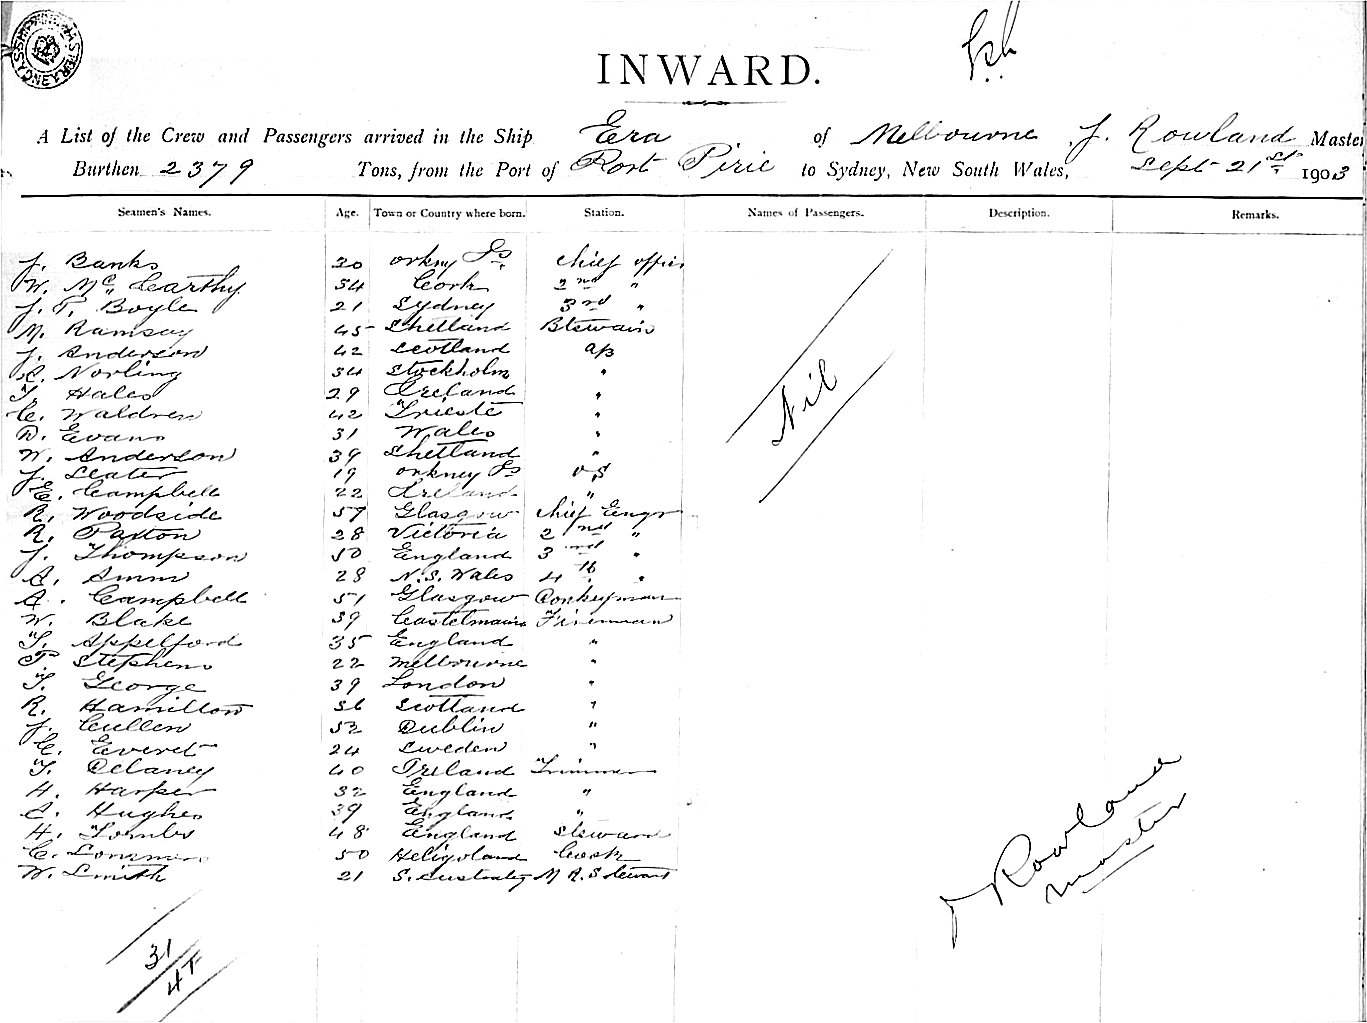 SHIPPING MASTER SYDNEY
INWARD.
A List of the Crew and Passengers arrived in the Ship Era of Melbourne, J. Rowland Master
Burthen 2379 Tons, from the Port of Port Pirie to Sydney, New South Wales, Sept 21st 1903
Seamen's Names. Age. Town or Country where born. Station. Names of Passengers. Description. Remarks.
J. Banks 30 Orkney Is. Chief offic
W. McCarthy 54 Cork 2nd "
J. T. Boyle 21 Sydney 3rd "
M. Ramsay 45 Shetland Btswain
J. Anderson 42 Scotland AB
Norling 34 Stockholm "
T. Hales 29 Ireland "
C. Waldren 42 Trieste "
D. Evans 31 Wales "
W. Anderson 39 Shetland "
J. Slater 19 Orkney Is OS
E. Campbell 22 Ireland "
R. Woodside 57 Glasgow Chief Engr
R. Paxton 28 Victoria 2nd "
J. Thompson 50 England 3rd "
A. Amm 28 N.S. Wales 4th "
A. Campbell 51 Glasgow Donkeyman
W. Blake 39 Castelmaine Fireman
T. Appelford 35 England "
Stephens 22 Melbourne "
T. George 39 London "
R. Hamilton 36 Scotland "
J. Cullen 52 Dublin "
C. Everet 24 Sweden "
T. Delaney 40 Ireland Trimmer
H. Harper 32 England "
A. Hughes 39 England "
H. Tombs 48 England Steward
C. 50 Heligoland Cook
W. Smith 21 S. Australia M R. Stewart
Nil
31
J Rowland
Master